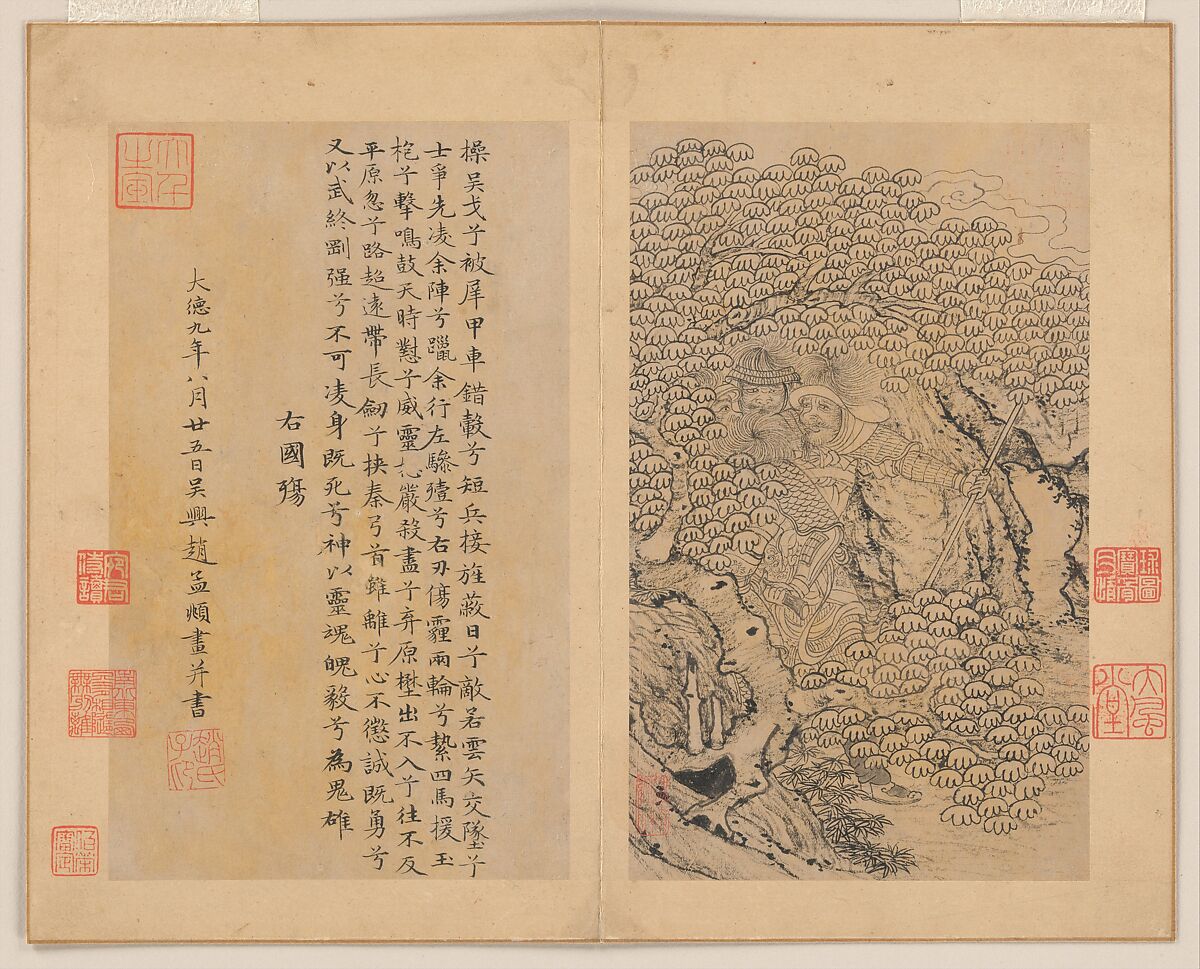 操吳戈兮被犀甲車錯轂兮短兵接旌蔽日兮敵若雲矢交墜兮
士爭先凌余陣兮躐余行左驂殪兮右刃傷霾兩輪兮縶四馬援玉
枹兮擊鳴鼓天時懟兮威靈怒嚴殺盡兮弃原壄出不入兮往不反
平原忽兮路超遠帶長劒兮挾秦弓首雖離兮心不懲誠既勇兮
又以武終剛强兮不可凌身既死兮神以靈魂魄毅兮為鬼雄
右國殤
大德九年八月廿五日吳興趙孟頫畫并書
趙氏子印
球圖寶骨肉情
大風堂